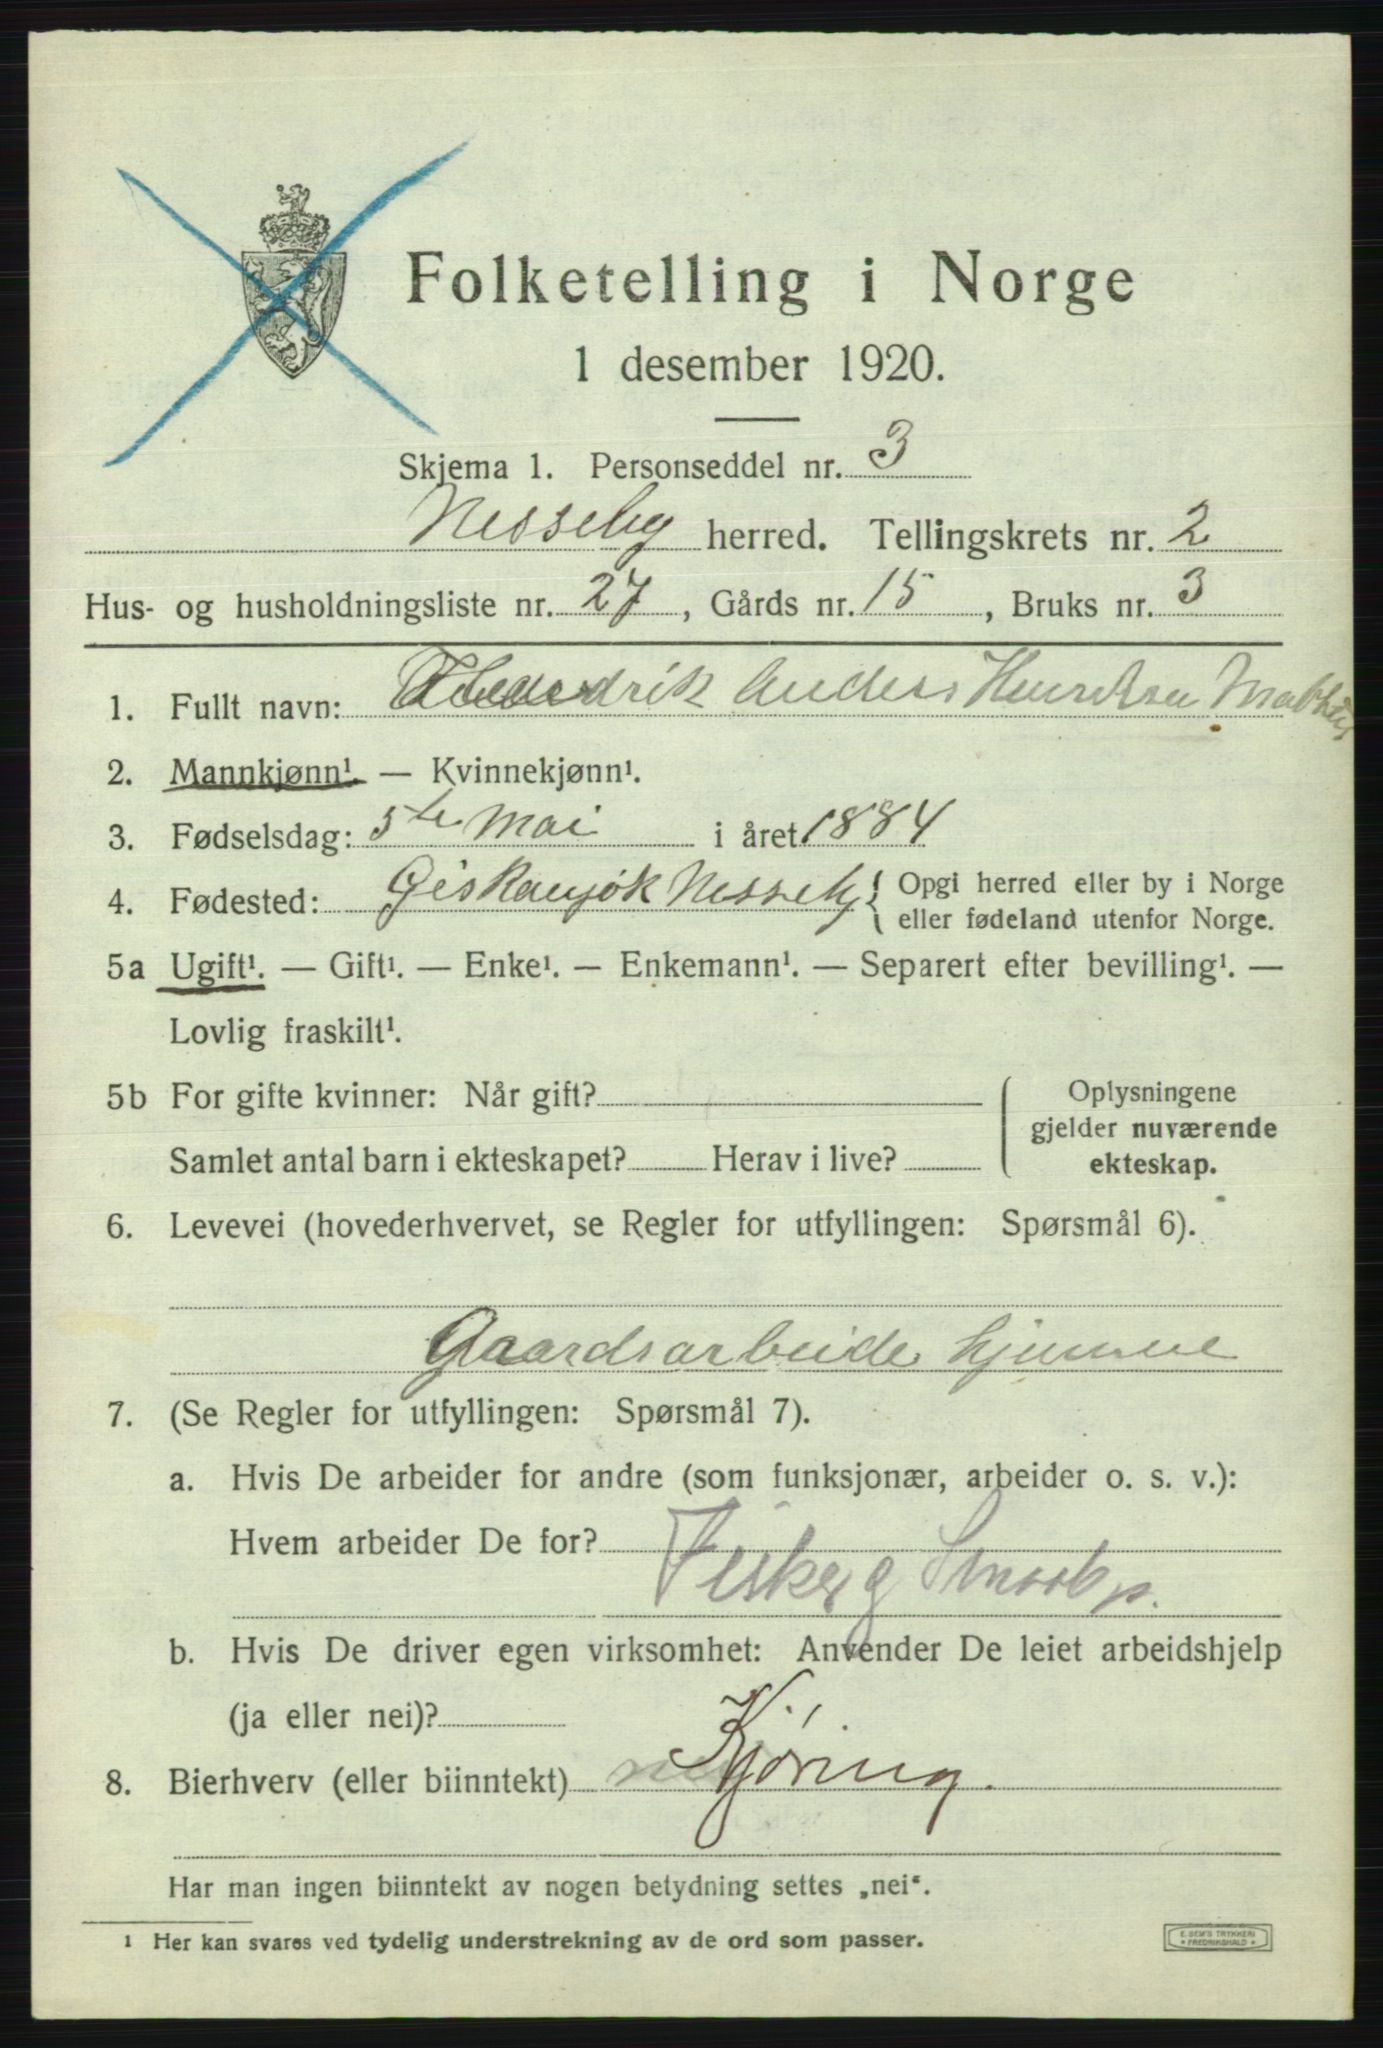 Folketelling i Norge
1 desember 1920.
Skjema 1. Personseddel nr. 3
Nesseby herred. Tellingskrets nr. 2
Hus- og husholdningsliste nr. 27, Gårds nr. 15, Bruks nr. 3
1. Fullt navn: Hendrik Anders Henriksen
2. Mannkjønn¹. — Kvinnekjønn¹.
3. Fødselsdag: 5te Mai i året 1884
4. Fødested: Nesseby { Opgi herred eller by i Norge
eller fødeland utenfor Norge.
5a Ugift¹. — Gift¹. — Enke¹. — Enkemann¹. — Separert efter bevilling¹. —
Lovlig fraskilt¹.
5b For gifte kvinner: Når gift? Oplysningene
gjelder nuværende
Samlet antal barn i ekteskapet? Herav i live? ekteskap.
6. Levevei (hovederhvervet, se Regler for utfyllingen: Spørsmål 6).
Gaardsarbeide hjemme
7. (Se Regler for utfyllingen: Spørsmål 7).
a. Hvis De arbeider for andre (som funksjonær, arbeider o. s. v.):
Hvem arbeider De for?
Fisker g
b. Hvis De driver egen virksomhet: Anvender De leiet arbeidshjelp
(ja eller nei)?
8. Bierhverv (eller biinntekt) Kjöring.
Har man ingen biinntekt av nogen betydning settes „nei“.
¹ Her kan svares ved tydelig understrekning av de ord som passer.
E. SEM'S TRYKKERI
* FREDRIKSHALD *